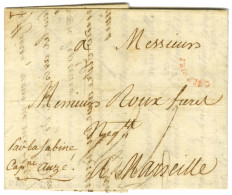 a Messieurs
Messieurs Roux freres
Neg.ts
Par la Sabine
Cap.ne Auzé.
A Marseille